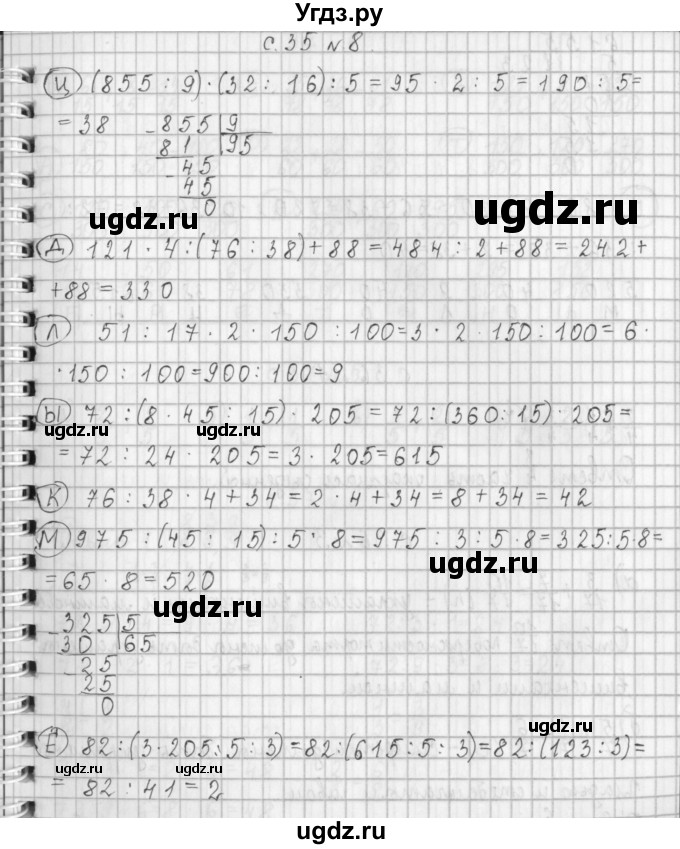 Угдз.ру
с.35 №8.
Ц (855 : 9) · (32 : 16) : 5 = 95 · 2 : 5 = 190 : 5 =
= 38 - 855 | 9
81 | 95
- 45
45
0
ugdz.ru
ugdz.ru
Д 121 · 4 : (76 : 38) + 88 = 484 : 2 + 88 = 242 +
+ 88 = 330
Л 51 : 17 · 2 · 150 : 100 = 3 · 2 · 150 : 100 = 6 ·
· 150 : 100 = 900 : 100 = 9
Ы 72 : (8 · 45 : 15) · 205 = 72 : (360 : 15) · 205 =
ugdz.ru ugdz.ru
= 72 : 24 · 205 = 3 · 205 = 615
К 76 : 38 · 4 + 34 = 2 · 4 + 34 = 8 + 34 = 42
М 975 : (45 : 15) : 5 · 8 = 975 : 3 : 5 · 8 = 325 : 5 · 8 =
ugdz.ru
= 65 · 8 = 520
ugdz.ru
- 325 | 5
30 | 65
- 25
25
0
ugdz.ru
Ё 82 : (3 · 205 : 5 : 3) = 82 : (615 : 5 : 3) = 82 : (123 : 3) =
ugdz.ru ugdz.ru
= 82 : 41 = 2
ugdz.ru